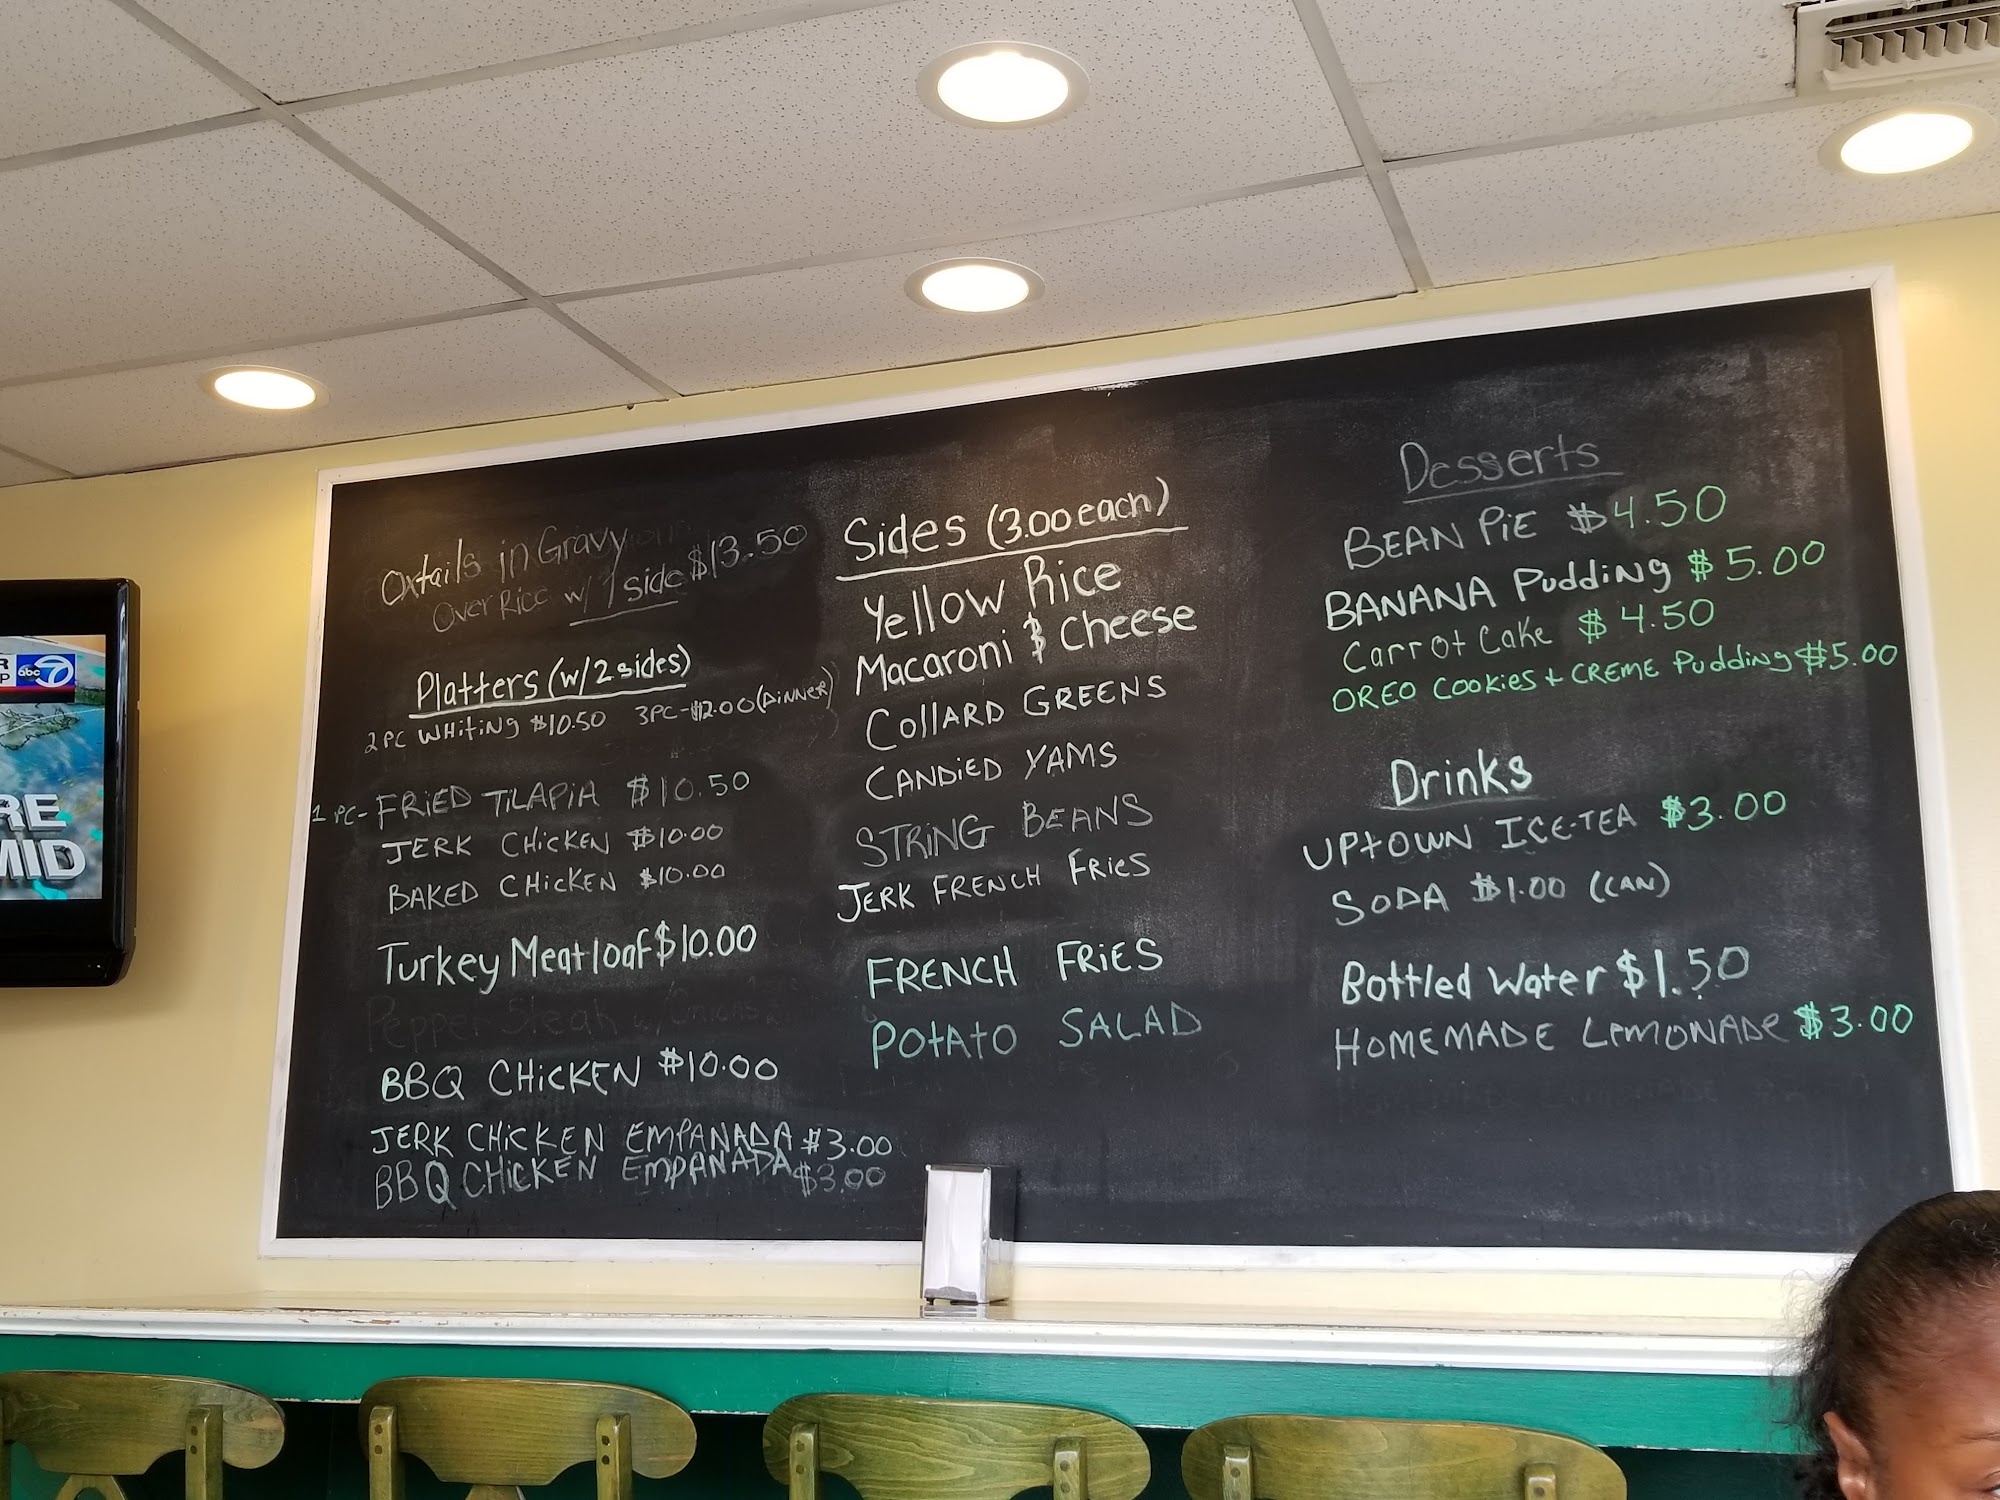 Oxtails in Gravy
Over Rice w/ 1 side $13.50
Platters (w/2 sides)
2PC WHiTiNg $10.50 3PC-$12.00 (DiNNER)
1 PC- FRiED TiLAPiA $10.50
JERK CHiCKEN $10.00
BAKED CHiCKEN $10.00
Turkey Meatloaf $10.00
Pepper Steak w/
BBQ CHiCKEN $10.00
JERK CHiCKEN EMPANADA $3.00
BBQ CHiCKEN EMPANADA $3.00
Sides (3.00 each)
Yellow Rice
Macaroni & Cheese
COllARD GREENS
CANDiED YAMS
STRiNG BEANS
JERK FRENCH FRiES
FRENCH FRiES
POtAtO SALAD
Desserts
BEAN PiE $4.50
BANANA PuddiNg $5.00
CarrOt CaKe $4.50
OREO COOKiEs + CREME PuddiNg $5.00
Drinks
UPtOWN ICE-TEA $3.00
SODA $1.00 (CAN)
Bottled Water $1.50
HOMEMADE LEMONADE $3.00
abc 7
R
P
RE
MID